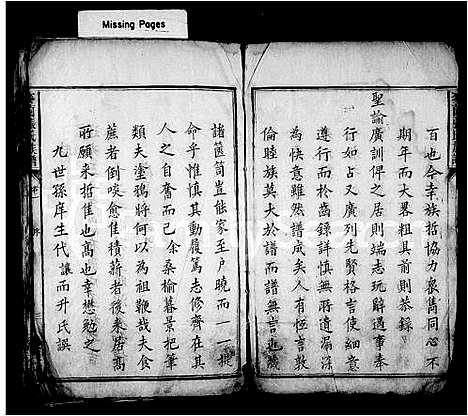 Missing Pages
百也今幸族哲協力襄雋同心不
期年而大畧粗具前則恭錄
聖諭廣訓俾之居則端志玩辭遇事奉
行如占又廣列先賢格吉使細意
遵行而於齒錄詳慎無所遺漏深
為快意雖然譜成矣人有恒言敦
倫睦族莫大於譜而譜無言也藏
諸篋笥豈能家至戶曉而一一提
命乎惟慎其動履篤志修齊在其
人之自奮而已余桑榆暮景把筆
類夫塗鴉將何以為祖鞭哉夫食
蔗者倒啖愈佳積薪者後来居高
所願来哲隹也高也幸懋勉之
九世孫庠生代讓而升氏譔